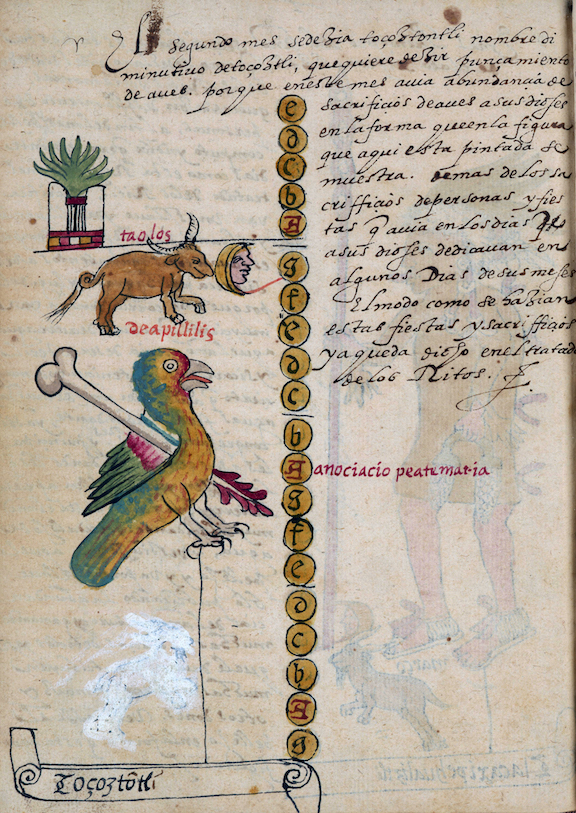 El segundo mes sedezia toçoztontli nombre di
minutivo detoçoztli, quequiere dezir punçamiento
de aues. porque eneste mes auia abundancia de
sacrificios deaues asusdioses
enlaforma queenla figura
que aqui esta pintada se
muestra. demas delossa
crifficios depersonas y fies
tas q̃ auia enlosdias q̃
asus dioses dedicauan en
algunos Dias desusmeses
El modo como sehazian
estas fiestas ysacrifficios
yaqueda dicho enel tratado
de los Ritos.
e
d
c
b
A
g
f
e
d
c
b
A
g
f
e
d
c
b
A
g
taolos
deapillilis
anociacio peatemaria
Toçoztõtli